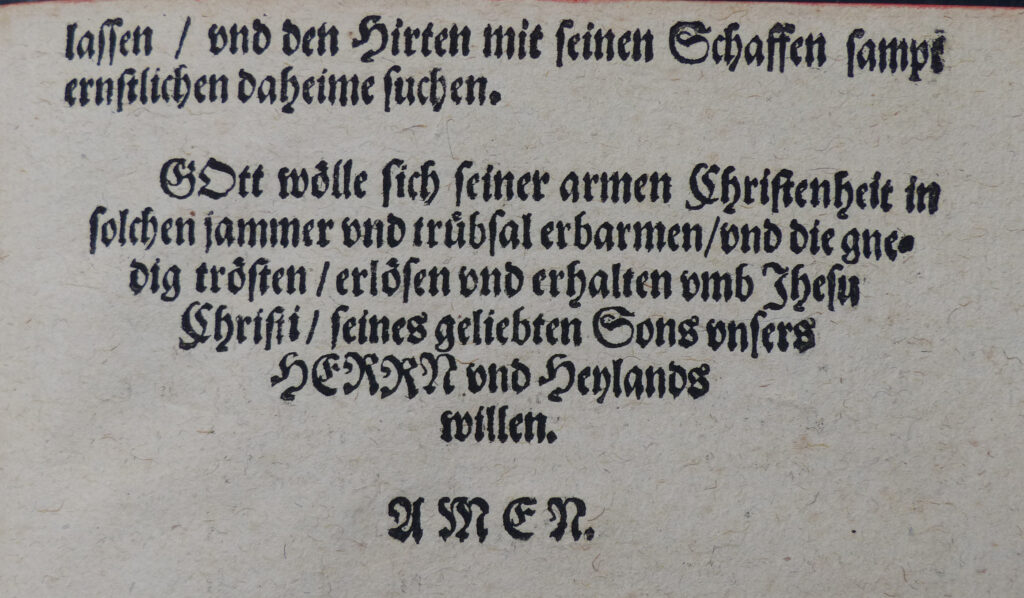 lassen / vnd den Hirten mit seinen Schaffen sampt
ernstlichen daheime suchen.
GOtt wölle sich seiner armen Christenheit in
solchen jammer vnd trübsal erbarmen/vnd die gne-
dig trösten / erlösen vnd erhalten vmb Jhesu
Christi / seines geliebten Sons vnsers
HERRN vnd Heylands
willen.
A M E N.